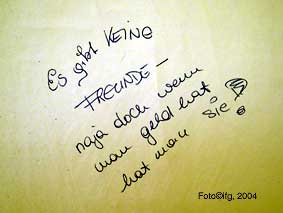 Es gibt KEINE
FREUNDE –
naja doch wenn
man geld hat
hat man sie?!
Foto©lfg, 2004